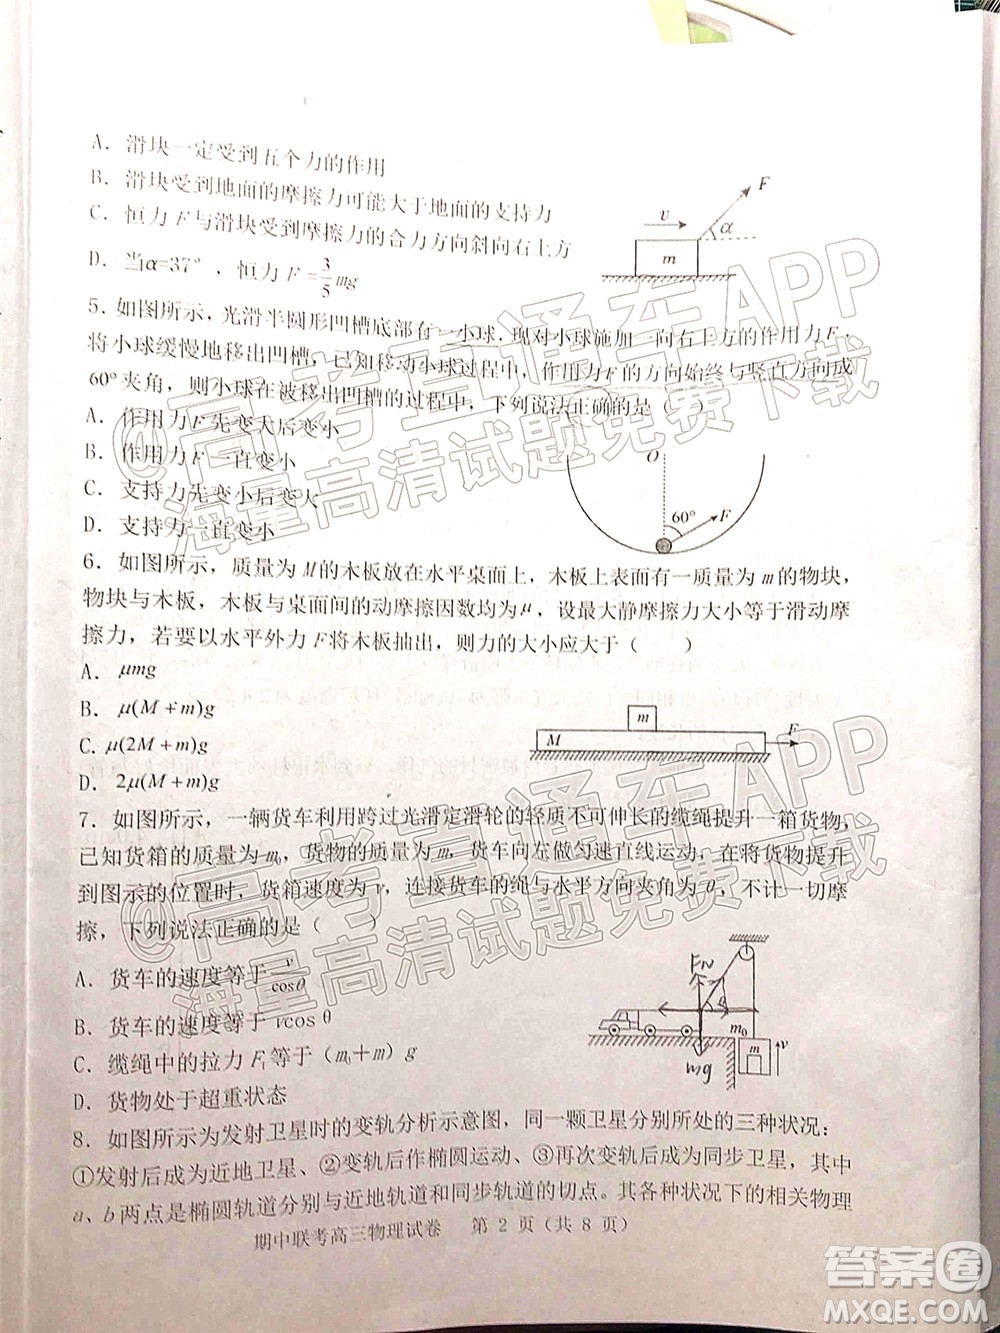 A. 滑块一定受到五个力的作用
B. 滑块受到地面的摩擦力可能大于地面的支持力
C. 恒力 F 与滑块受到摩擦力的合力方向斜向右上方
D. 当α=37°，恒力 F = 3/5 mg
v
F
α
m
5. 如图所示，光滑半圆形凹槽底部有一小球，现对小球施加一向右上方的作用力F，
将小球缓慢地移出凹槽，已知移动小球过程中，作用力 F 的方向始终与竖直方向成
60°夹角，则小球在被移出凹槽的过程中，下列说法正确的是（ ）
A. 作用力 F 先变大后变小
B. 作用力 F 一直变小
C. 支持力先变小后变大
D. 支持力一直变小
O
60°
F
6. 如图所示，质量为 M的木板放在水平桌面上，木板上表面有一质量为 m的物块，
物块与木板，木板与桌面间的动摩擦因数均为μ，设最大静摩擦力大小等于滑动摩
擦力，若要以水平外力 F将木板抽出，则力的大小应大于（ ）
A. μmg
B. μ(M+m)g
C. μ(2M+m)g
D. 2μ(M+m)g
m
M
F
7. 如图所示，一辆货车利用跨过光滑定滑轮的轻质不可伸长的缆绳提升一箱货物，
已知货箱的质量为m₀，货物的质量为m，货车向左做匀速直线运动，在将货物提升
到图示的位置时，货箱速度为 v，连接货车的绳与水平方向夹角为 θ，不计一切摩
擦，下列说法正确的是（ ）
A. 货车的速度等于 v/cosθ
B. 货车的速度等于 vcosθ
C. 缆绳中的拉力 F₁等于 (m₀+m) g
D. 货物处于超重状态
FN
m₀
m
v
mg
8. 如图所示为发射卫星时的变轨分析示意图，同一颗卫星分别所处的三种状况：
①发射后成为近地卫星、②变轨后作椭圆运动、③再次变轨后成为同步卫星，其中
a、b 两点是椭圆轨道分别与近地轨道和同步轨道的切点。其各种状况下的相关物理
期中联考高三物理试卷 第 2 页（共 8 页）
@高考直通车APP
海量高清试题免费下载
@高考直通车APP
海量高清试题免费下载
答案圈
MXQE.COM